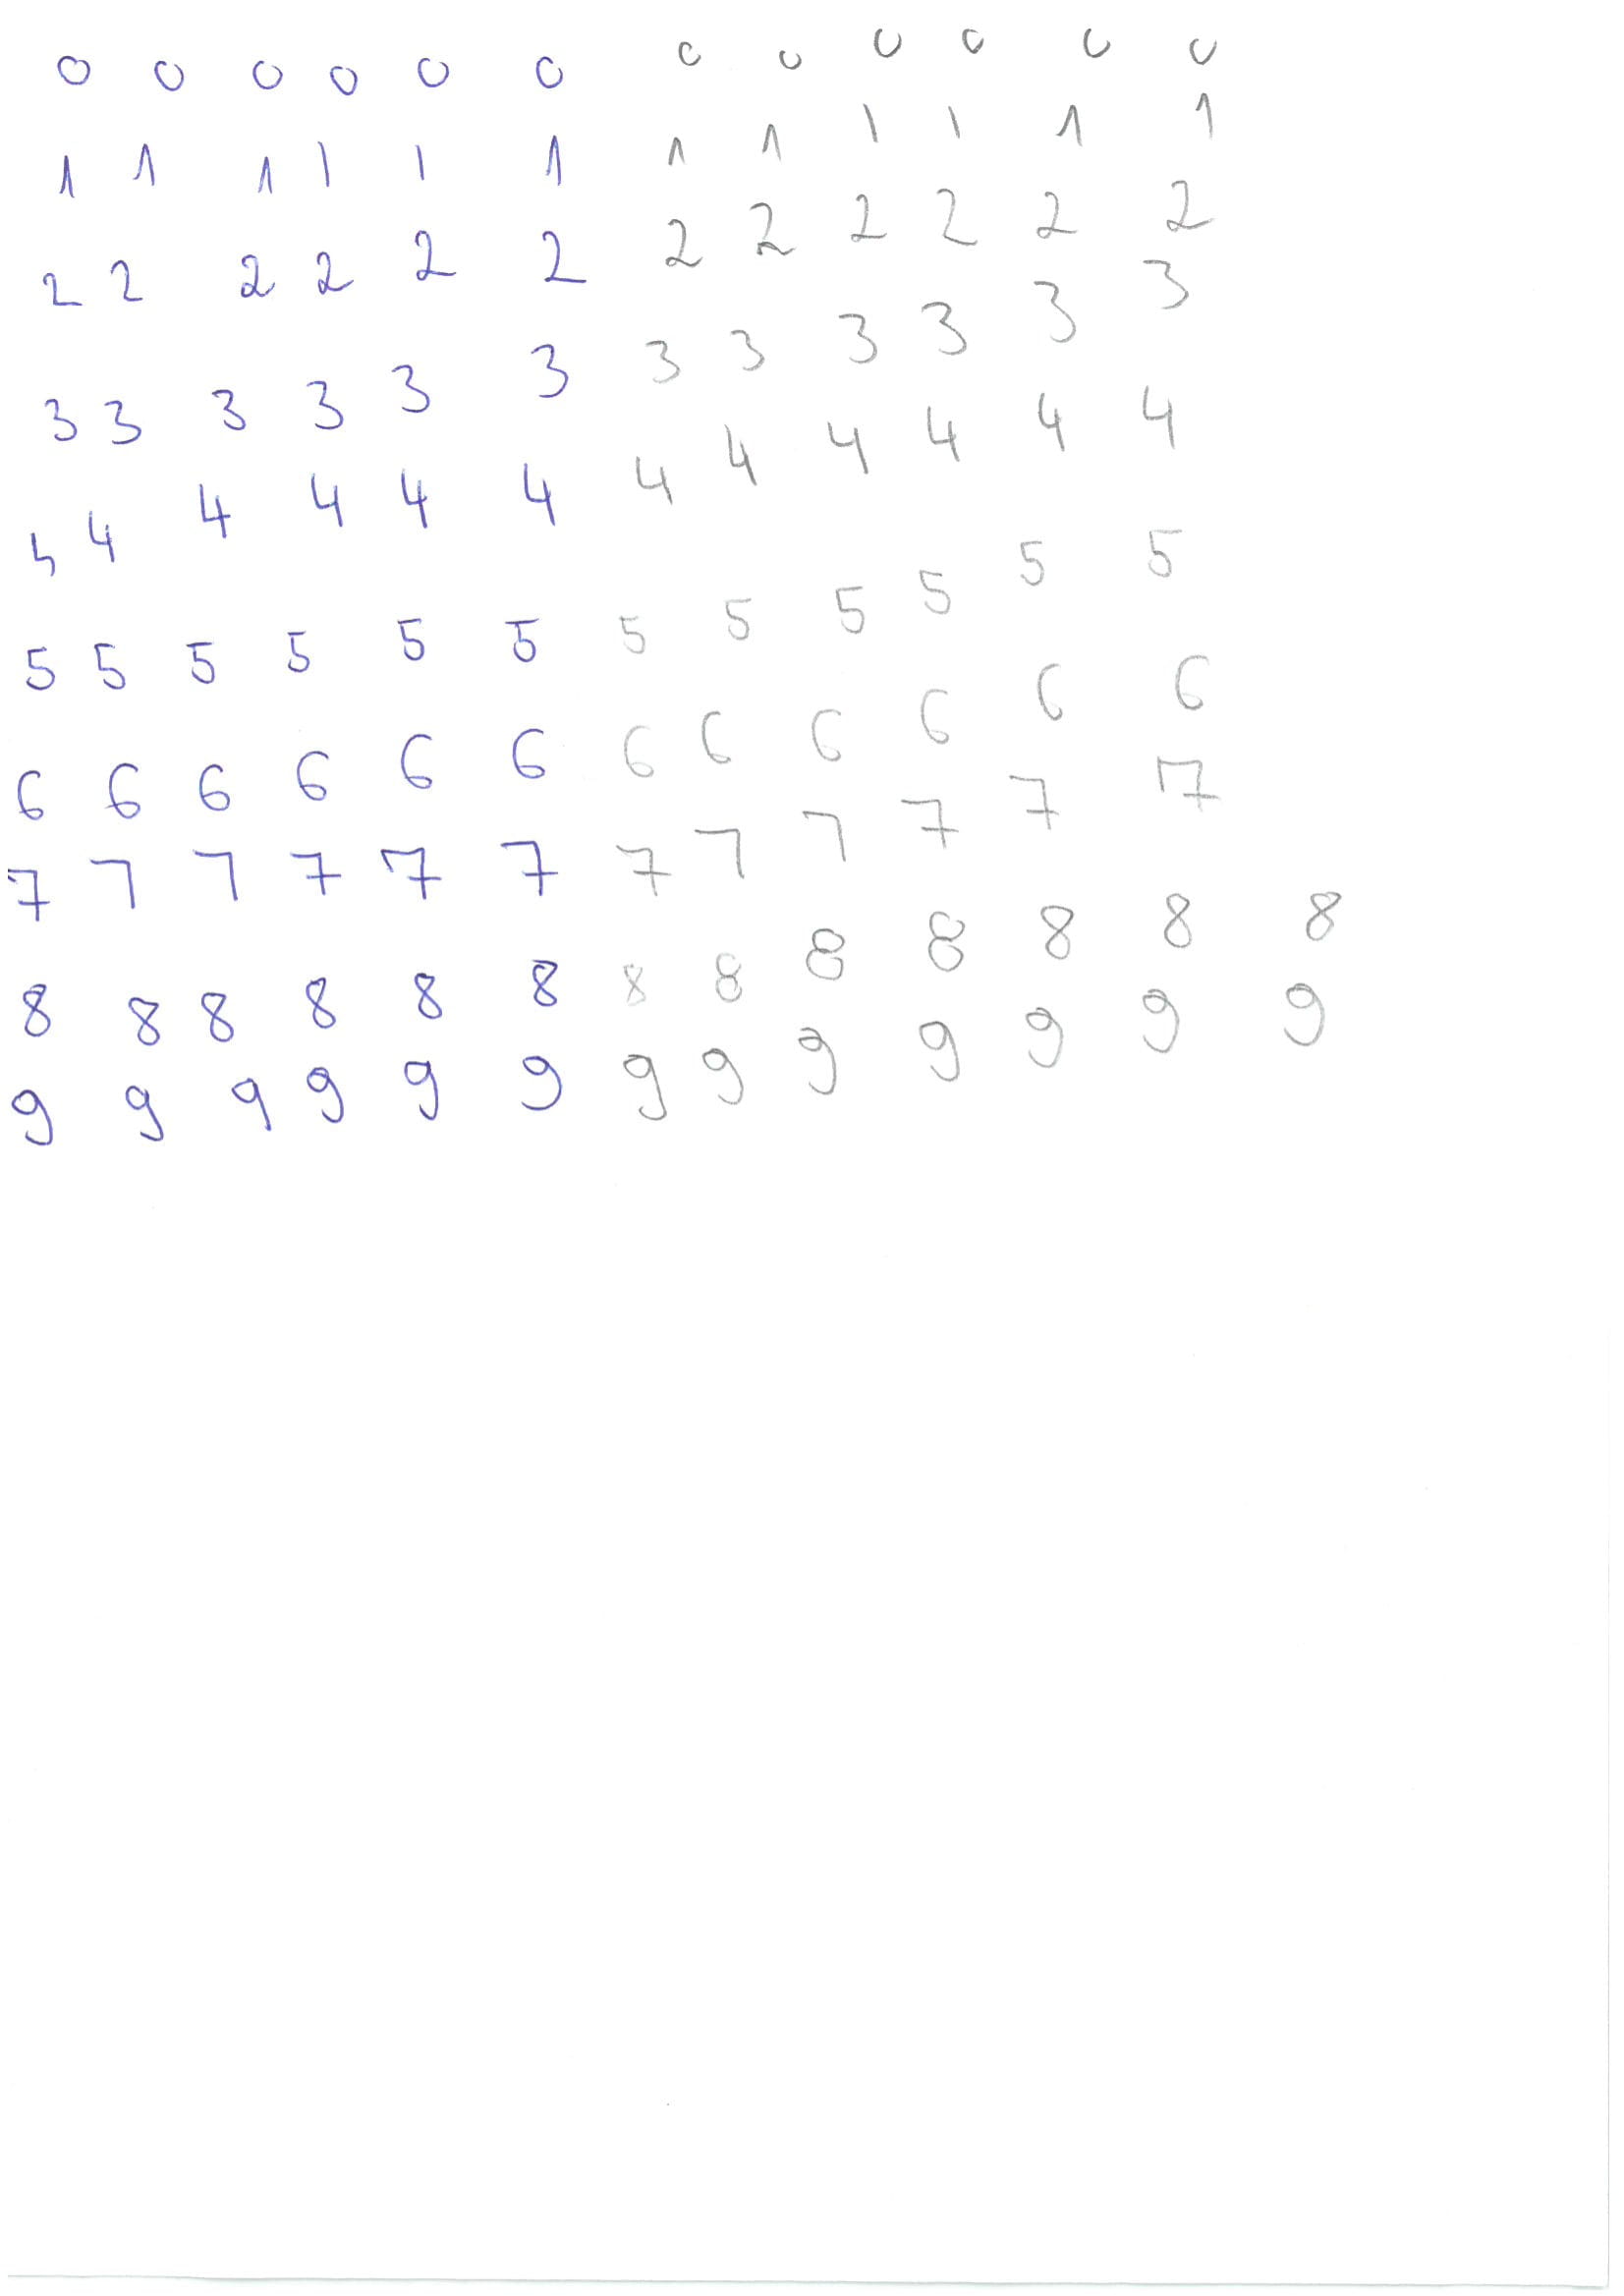 0 0 0 0 0 0 0 0 0 0 0 0
1 1 1 1 1 1 1 1 1 1 1 1
2 2 2 2 2 2 2 2 2 2 2 2
3 3 3 3 3 3 3 3 3 3 3 3
4 4 4 4 4 4 4 4 4 4 4 4
5 5 5 5 5 5 5 5 5 5 5 5
6 6 6 6 6 6 6 6 6 6 6 6
7 7 7 7 7 7 7 7 7 7 7 7
8 8 8 8 8 8 8 8 8 8 8 8 8
9 9 9 9 9 9 9 9 9 9 9 9 9